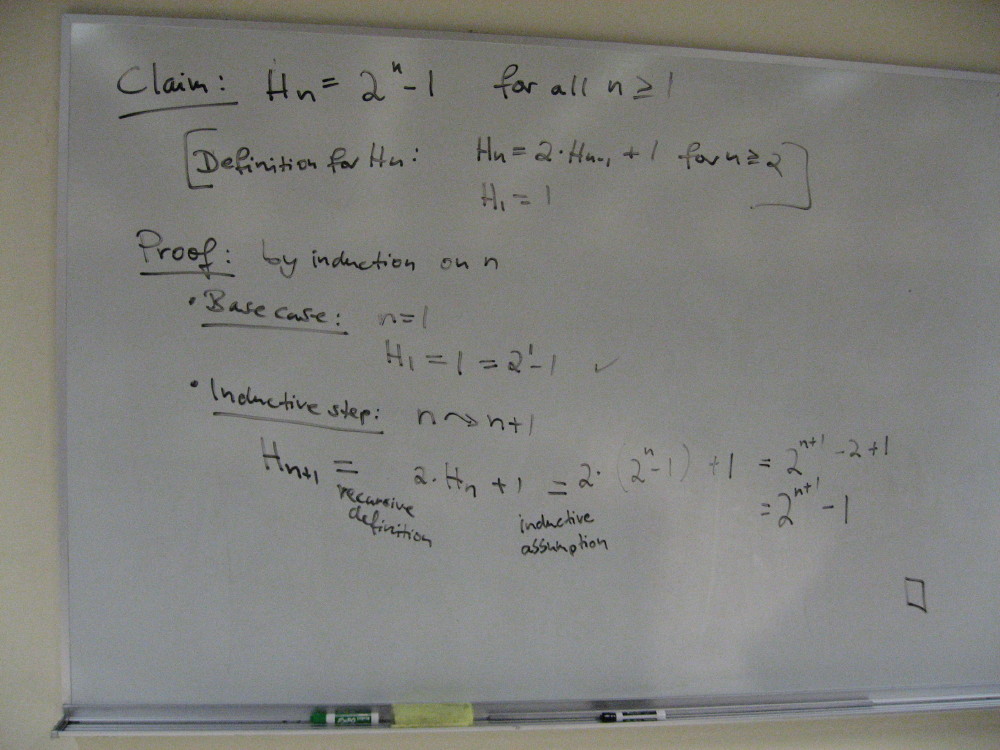 Claim: Hn = 2^n - 1 for all n ≥ 1
[Definition for Hn: Hn = 2·Hn-1 + 1 for n ≥ 2
H1 = 1]
Proof: by induction on n
• Base case: n=1
H1 = 1 = 2^1 - 1 ✓
• Inductive step: n ⤳ n+1
Hn+1 = 2·Hn + 1 = 2·(2^n - 1) + 1 = 2^n+1 - 2 + 1
recursive definition
inductive assumption
= 2^n+1 - 1
□